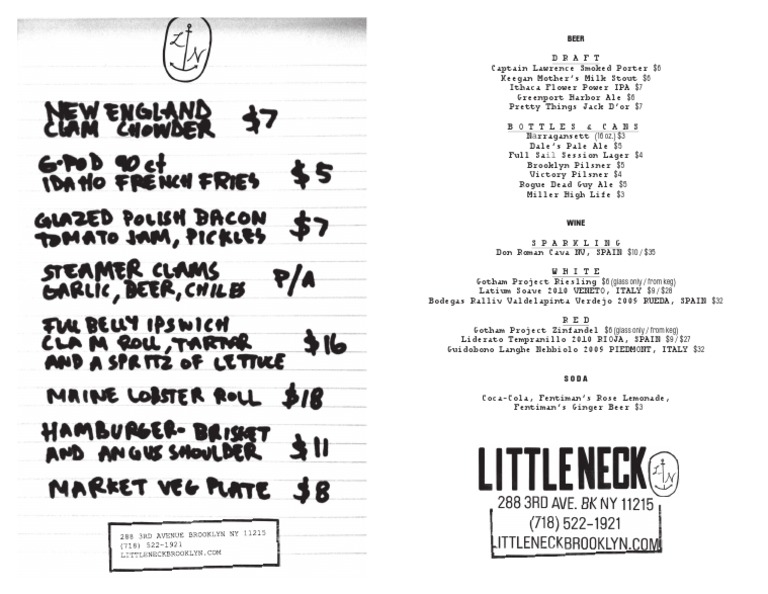 L N
NEW ENGLAND
CLAM CHOWDER $7
6-POD 90 ct
IDAHO FRENCH FRIES $5
GLAZED POLISH BACON
TOMATO JAM, PICKLES $7
STEAMER CLAMS
GARLIC, BEER, CHILES P/A
FULL BELLY IPSWICH
CLAM ROLL, TARTAR $16
AND A SPRITZ OF LETTUCE
MAINE LOBSTER ROLL $18
HAMBURGER- BRISKET
AND ANGUS SHOULDER $11
MARKET VEG PLATE $8
288 3RD AVENUE BROOKLYN NY 11215
(718) 522-1921
LITTLENECKBROOKLYN.COM
BEER
DRAFT
Captain Lawrence Smoked Porter $6
Keegan Mother's Milk Stout $6
Ithaca Flower Power IPA $7
Greenport Harbor Ale $6
Pretty Things Jack D'or $7
BOTTLES & CANS
Narragansett (16 oz.) $3
Dale's Pale Ale $5
Full Sail Session Lager $4
Brooklyn Pilsner $5
Victory Pilsner $4
Rogue Dead Guy Ale $5
Miller High Life $3
WINE
SPARKLING
Don Roman Cava NV, SPAIN $10 / $35
WHITE
Gotham Project Riesling $6 (glass only / from keg)
Latium Soave 2010 VENETO, ITALY $9 / $28
Bodegas Ralliv Valdelapinta Verdejo 2009 RUEDA, SPAIN $32
RED
Gotham Project Zinfandel $6 (glass only / from keg)
Liderato Tempranillo 2010 RIOJA, SPAIN $9 / $27
Guidobono Langhe Nebbiolo 2009 PIEDMONT, ITALY $32
SODA
Coca-Cola, Fentiman's Rose Lemonade,
Fentiman's Ginger Beer $3
LITTLENECK L N
288 3RD AVE. BK NY 11215
(718) 522-1921
LITTLENECKBROOKLYN.COM